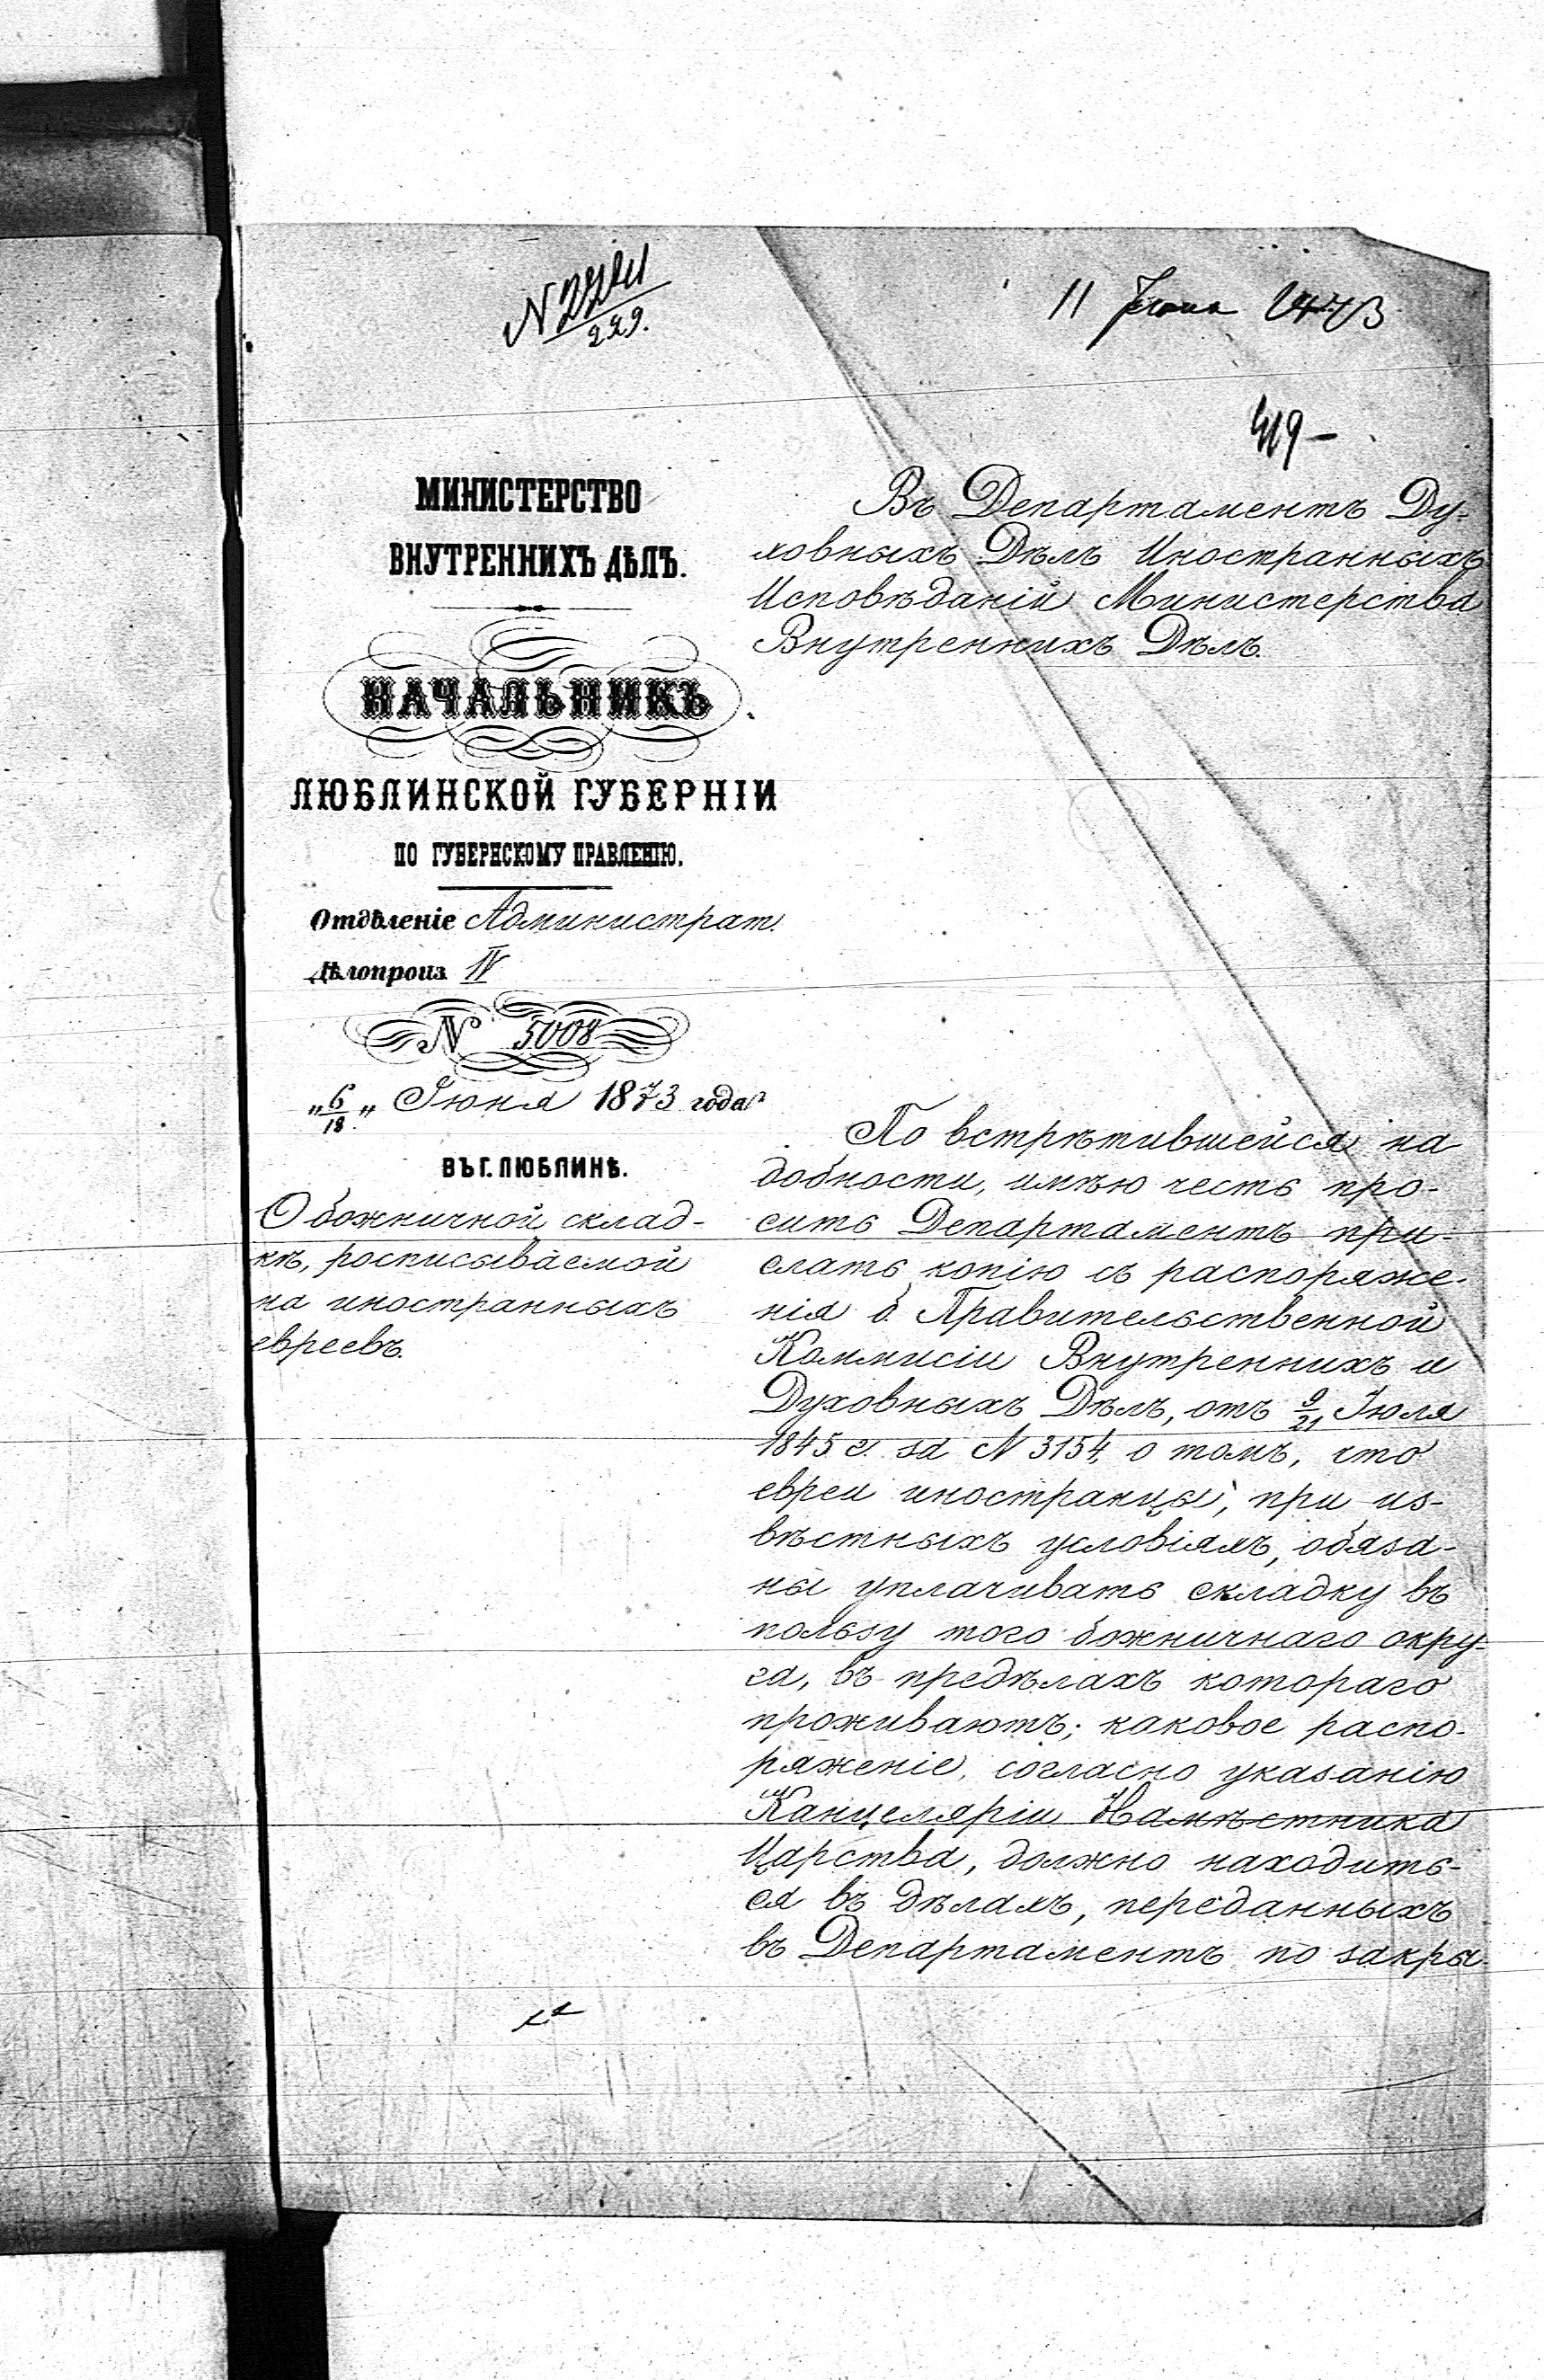 11 Іюня 1873
419
МИНИСТЕРСТВО
ВНУТРЕННИХЪ ДѢЛЪ.
НАЧАЛЬНИКЪ
ЛЮБЛИНСКОЙ ГУБЕРНІИ
ПО ГУБЕРНСКОМУ ПРАВЛЕНІЮ.
Отдѣленіе Администрат.
Дѣлопроиз IV
N 5008
„6/18„ Іюня 1873 года
ВЪ Г. ЛЮБЛИНѢ.
О божничной склад-
кѣ, росписываемой
на иностранныхъ
евреевъ.
Въ Департаментъ Ду-
ховныхъ Дѣлъ Иностранныхъ
Исповѣданій Министерства
Внутреннихъ Дѣлъ.
По встрѣтившейся на
добности, имѣю честь про-
сить Департаментъ при-
слать копію съ распоряже-
нія б. Правительственной
Коммисіи Внутреннихъ и
Духовныхъ Дѣлъ, отъ 9/21 Іюля
1845 г. за N 3154, о томъ, что
евреи иностранцы, при из-
вѣстныхъ условіяхъ, обяза-
ны уплачивать складку въ
пользу того божничнаго окру-
га, въ предѣлахъ котораго
проживаютъ; каковое распо-
ряженіе, согласно указанію
Канцеляріи Намѣстника
Царства, должно находить-
ся въ дѣлахъ, переданныхъ
въ Департаментъ по закры-